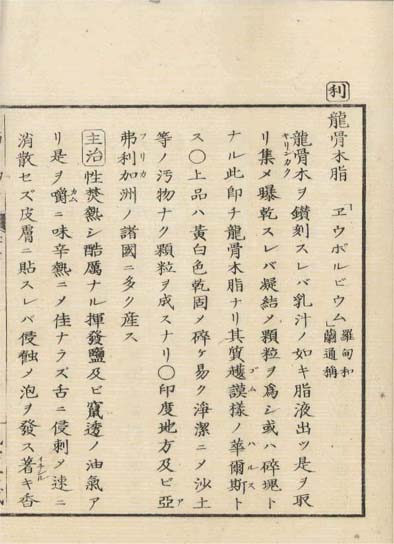 利
龍骨木脂 「ヱウポルビウム」羅甸和蘭通稱
龍骨木ヲ鑽刻スレバ乳汁ノ如キ脂液出ツ是ヲ取
リ集メ曝乾スレバ凝結メ顆粒ヲ爲シ或ハ碎塊ト
ナル此卽チ龍骨木脂ナリ其質護謨樣ノ華爾斯ト
ス〇上品ハ黃白色乾固メ碎ケ易ク淨潔ニメ沙土
等ノ汚物ナク顆粒ヲ成スナリ〇印度地方及ビ亞
弗利加洲ノ諸國ニ多ク産ス
主治 性焚熱シ酷厲ナル揮發鹽及ビ竄透ノ油氣ア
リ是ヲ嚼ニ味辛熱ニメ佳ナラズ舌ニ侵刺メ速ニ
消散セズ皮膚ニ貼スレバ侵蝕メ泡ヲ發ス著キ香